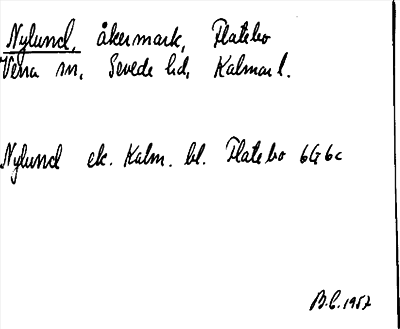 Nylund, åkermark, Flatebo
Vena sn, Sevede hd, Kalmar l.
Nylund ek. Kalm. bl. Flatebo 6G6c
B.C. 1957